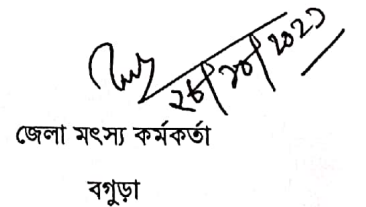 ২৮/১০/২০২১
জেলা মৎস্য কর্মকর্তা
বগুড়া